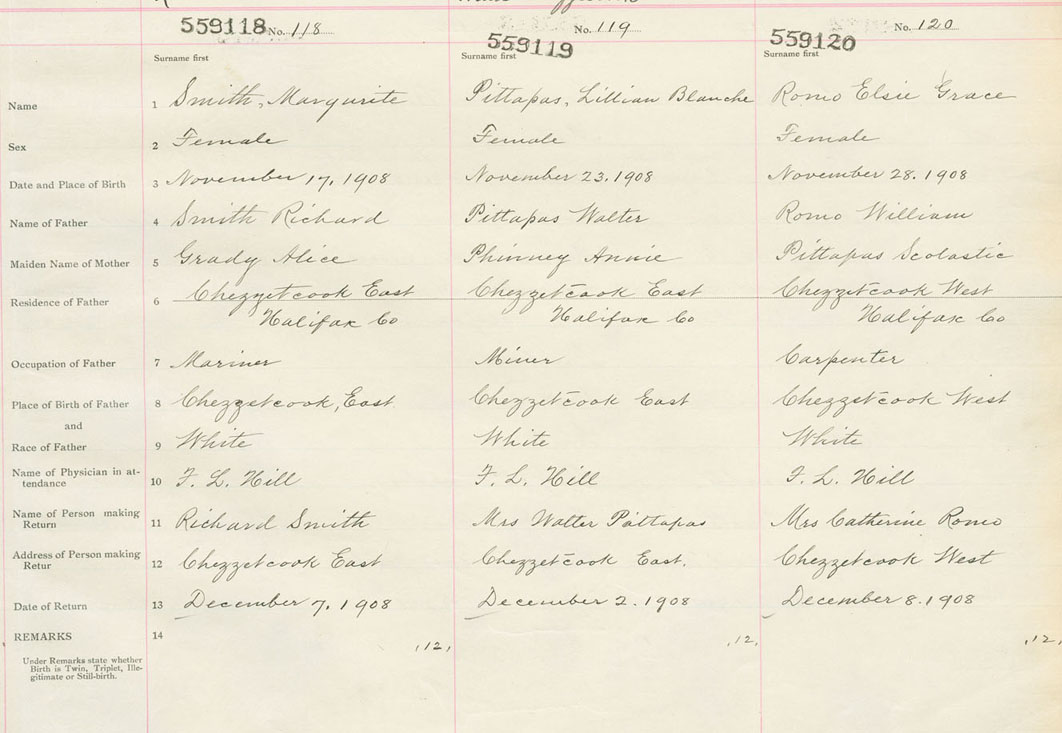 559118 No. 118
559119 No. 119
559120 No. 120
Surname first Surname first Surname first
Name 1 Smith, Margurite Pittapas, Lillian Blanche Romo Elsie Grace
Sex 2 Female Female Female
Date and Place of Birth 3 November 17, 1908 November 23. 1908 November 28. 1908
Name of Father 4 Smith Richard Pittapas Walter Romo William
Maiden Name of Mother 5 Grady Alice Phinney Annie Pittapas Scolastic
Residence of Father 6 Chezzetcook East Chezzetcook East Chezzetcook West
Halifax Co Halifax Co Halifax Co
Occupation of Father 7 Mariner Miner Carpenter
Place of Birth of Father 8 Chezzetcook, East Chezzetcook East Chezzetcook West
and
Race of Father 9 White White White
Name of Physician in at-
tendance 10 F. L. Hill F. L. Hill F. L. Hill
Name of Person making
Return 11 Richard Smith Mrs Walter Pattapas Mrs Catherine Romo
Address of Person making
Retur 12 Chezzetcook East Chezzetcook East. Chezzetcook West
Date of Return 13 December 7, 1908 December 2. 1908 December 8. 1908
REMARKS 14
,12, ,12, ,12,
Under Remarks state whether
Birth is Twin, Triplet, Ille-
gitimate or Still-birth.